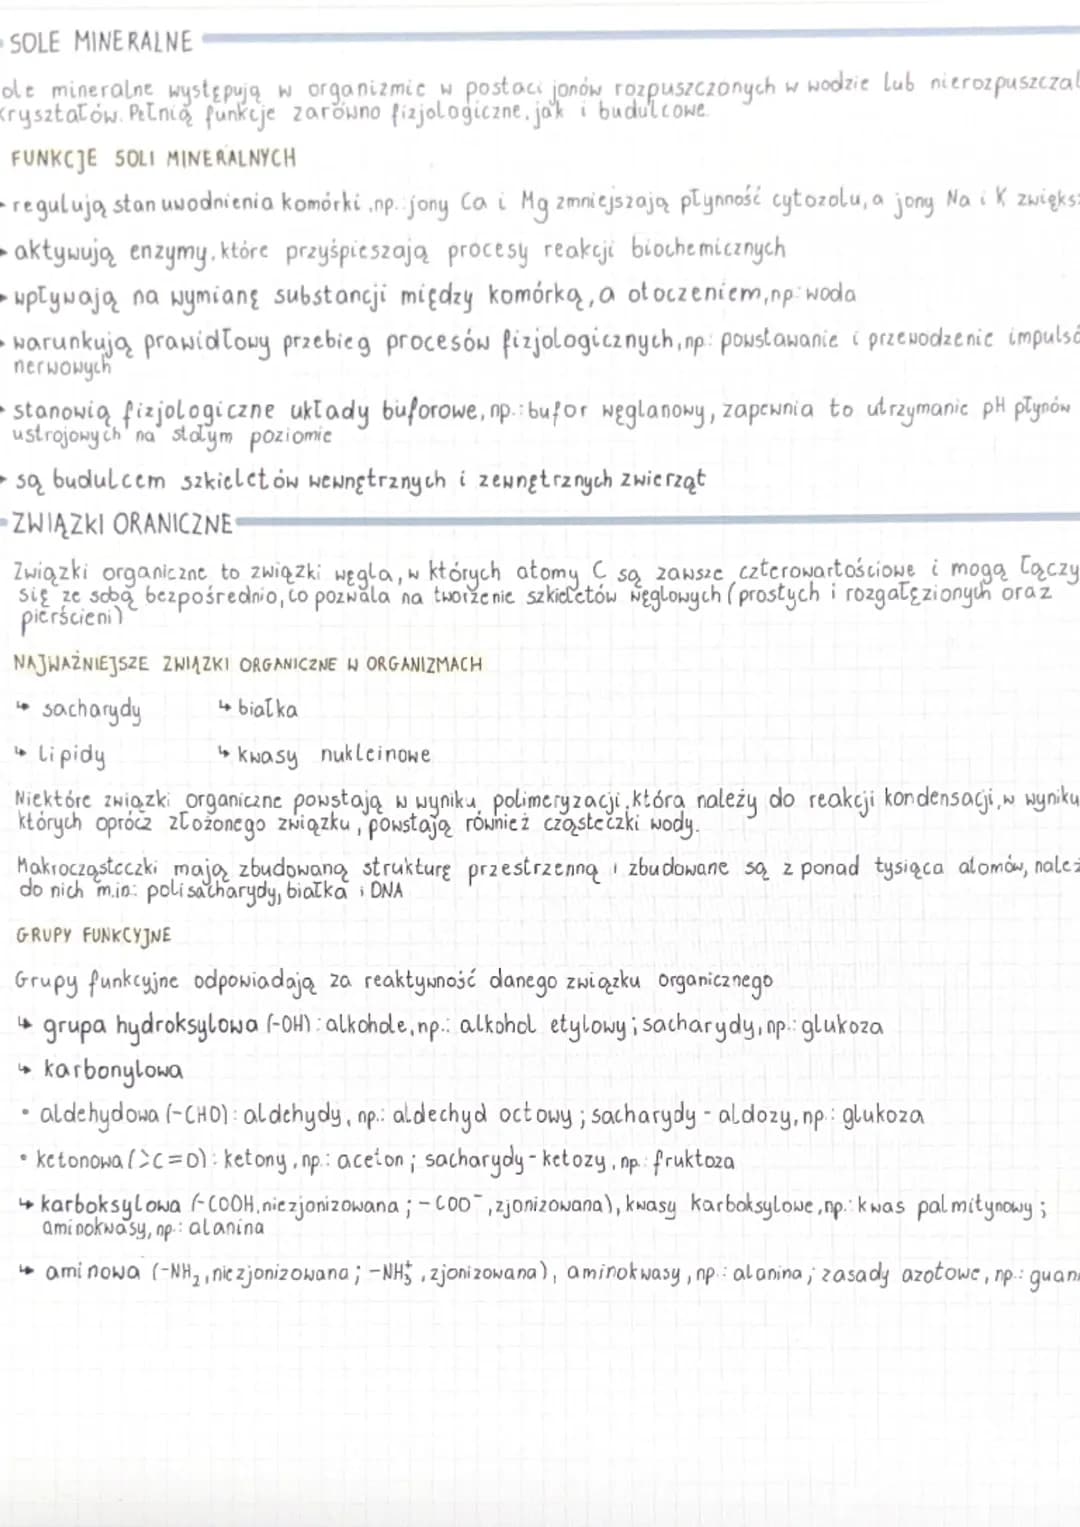 SOLE MINERALNE
ole mineralne występują w organizmie w postaci jonów rozpuszczonych w wodzie lub nierozpuszczal
kryształów. Pełnią funkcje zarówno fizjologiczne, jak i budulcowe.
FUNKCJE SOLI MINERALNYCH
regulują stan uwodnienia komórki, np.: jony Ca i Mg zmniejszają płynność cytozolu, a jony Na i K zwięks
aktywują enzymy, które przyśpieszają procesy reakcji biochemicznych
wpływają na wymianę substancji między komórką, a otoczeniem, np: woda
warunkują prawidłowy przebieg procesów fizjologicznych, np: powstawanie i przewodzenie impulsó
nerwowych
stanowią fizjologiczne układy buforowe, np.: bufor węglanowy, zapewnia to utrzymanie pH płynów
ustrojowych na stałym poziomie
są budulcem szkieletów wewnętrznych i zewnętrznych zwierząt
ZWIĄZKI ORANICZNE
Związki organiczne to związki węgla, w których atomy C są zawsze czterowartościowe i mogą łączy
się ze sobą bezpośrednio, co pozwala na tworzenie szkieletów węglowych (prostych i rozgałęzionych oraz
pierścieni)
NAJWAŻNIEJSZE ZWIĄZKI ORGANICZNE W ORGANIZMACH
↳ sacharydy ↳ białka
↳ lipidy ↳ kwasy nukleinowe
Niektóre związki organiczne powstają w wyniku polimeryzacji, która należy do reakcji kondensacji, w wyniku
których oprócz złożonego związku, powstają również cząsteczki wody.
Makrocząsteczki mają zbudowaną strukturę przestrzenną i zbudowane są z ponad tysiąca atomów, należ
do nich m.in: polisacharydy, białka i DNA
GRUPY FUNKCYJNE
Grupy funkcyjne odpowiadają za reaktywność danego związku organicznego
↳ grupa hydroksylowa (-OH): alkohole, np.: alkohol etylowy; sacharydy, np.: glukoza
↳ karbonylowa
• aldehydowa (-CHO): aldehydy, np.: aldechyd octowy; sacharydy - aldozy, np.: glukoza
• ketonowa (>C=O): ketony, np.: aceton; sacharydy - ketozy, np: fruktoza
↳ karboksylowa (-COOH, niezjonizowana; -COO⁻, zjonizowana), kwasy karboksylowe, np.: kwas palmitynowy;
aminokwasy, np.: alanina
↳ aminowa (-NH₂, niezjonizowana; -NH₃⁺, zjonizowana), aminokwasy, np.: alanina; zasady azotowe, np.: guani